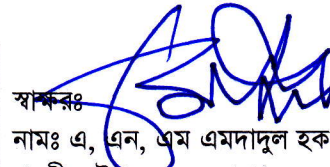 স্বাক্ষরঃ
নামঃ এ, এন, এম এমদাদুল হক